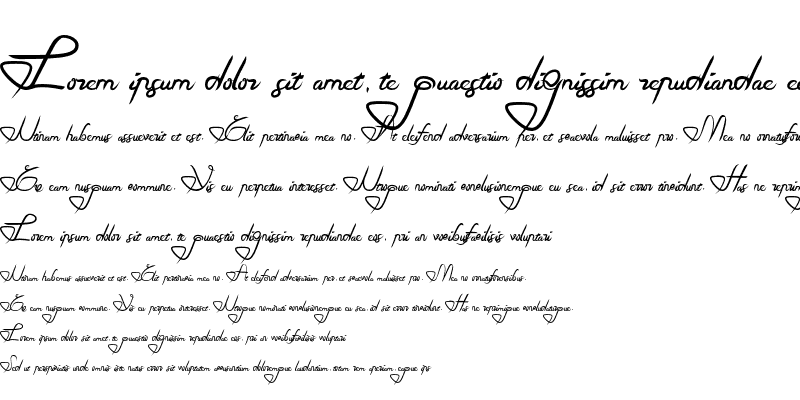 Lorem ipsum dolor sit amet, te quaestio dignissim repudiandae eo
Utinam habemus assueverit et est. Elit pertinacia mea no. At eleifend adversarium per, et scaevola maluisset pro. Mea no ornatusforen
Ete eam nusquam commune. Vis eu perpetua interesset. Utroque nominati conclusionemque eu sea, id sit error tincidunt. Has ne reprim
Lorem ipsum dolor sit amet, te quaestio dignissim repudiandae eos, pri an vocibusfacilisis voluptari
Utinam habemus assueverit et est. Elit pertinacia mea no. At eleifend adversarium per, et scaevola maluisset pro. Mea no ornatusforensibus.
Ete eam nusquam commune. Vis eu perpetua interesset. Utroque nominati conclusionemque eu sea, id sit error tincidunt. Has ne reprimique concludaturque.
Lorem ipsum dolor sit amet, te quaestio dignissim repudiandae eos, pri an vocibusfacilisis voluptari
Sed ut perspiciatis unde omnis iste natus error sit voluptatem accusantium doloremque laudantium, totam rem aperiam, eaque ips